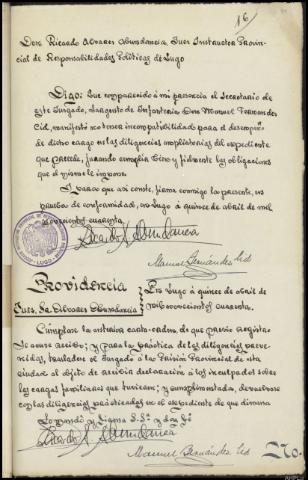 16
Don Ricardo Alvarez Abundancia, Juez Instructor Provin-
cial de Responsabilidades Políticas de Lugo
Digo: Que comparecido á mi presencia el Secretario de
este Juzgado, Sargento de Infantería Don Manuel Fernández
Cid, manifestó no tener incompatibilidad para el desempeño
de dicho cargo en las diligencias ampliatorias del expediente
que precede, jurando cumplir bien y fielmente las obligaciones
que el mismo le impone.
Y para que así conste, firma conmigo la presente, en
prueba de conformidad, en Lugo á quince de abril de mil
novecientos cuarenta.
Ricardo A. Abundancia
Manuel Fernández Cid
Providencia
Juez, Sr. Alvarez Abundancia
En Lugo á quince de abril de
mil novecientos cuarenta.
Cúmplase la anterior carta-orden, de que previo registro
se acuse recibo; y para la práctica de las diligencias preve-
nidas, trasládese el Juzgado a la Prisión Provincial de esta
ciudad al objeto de recibir declaración á los inculpados sobre
las cargas familiares que tuvieran; y cumplimentada, devuélvase
con las diligencias practicadas en el expediente de que dimana
Lo mandó y firma S.Sª. doy fé
Ricardo A. Abundancia
Manuel Fernández Cid